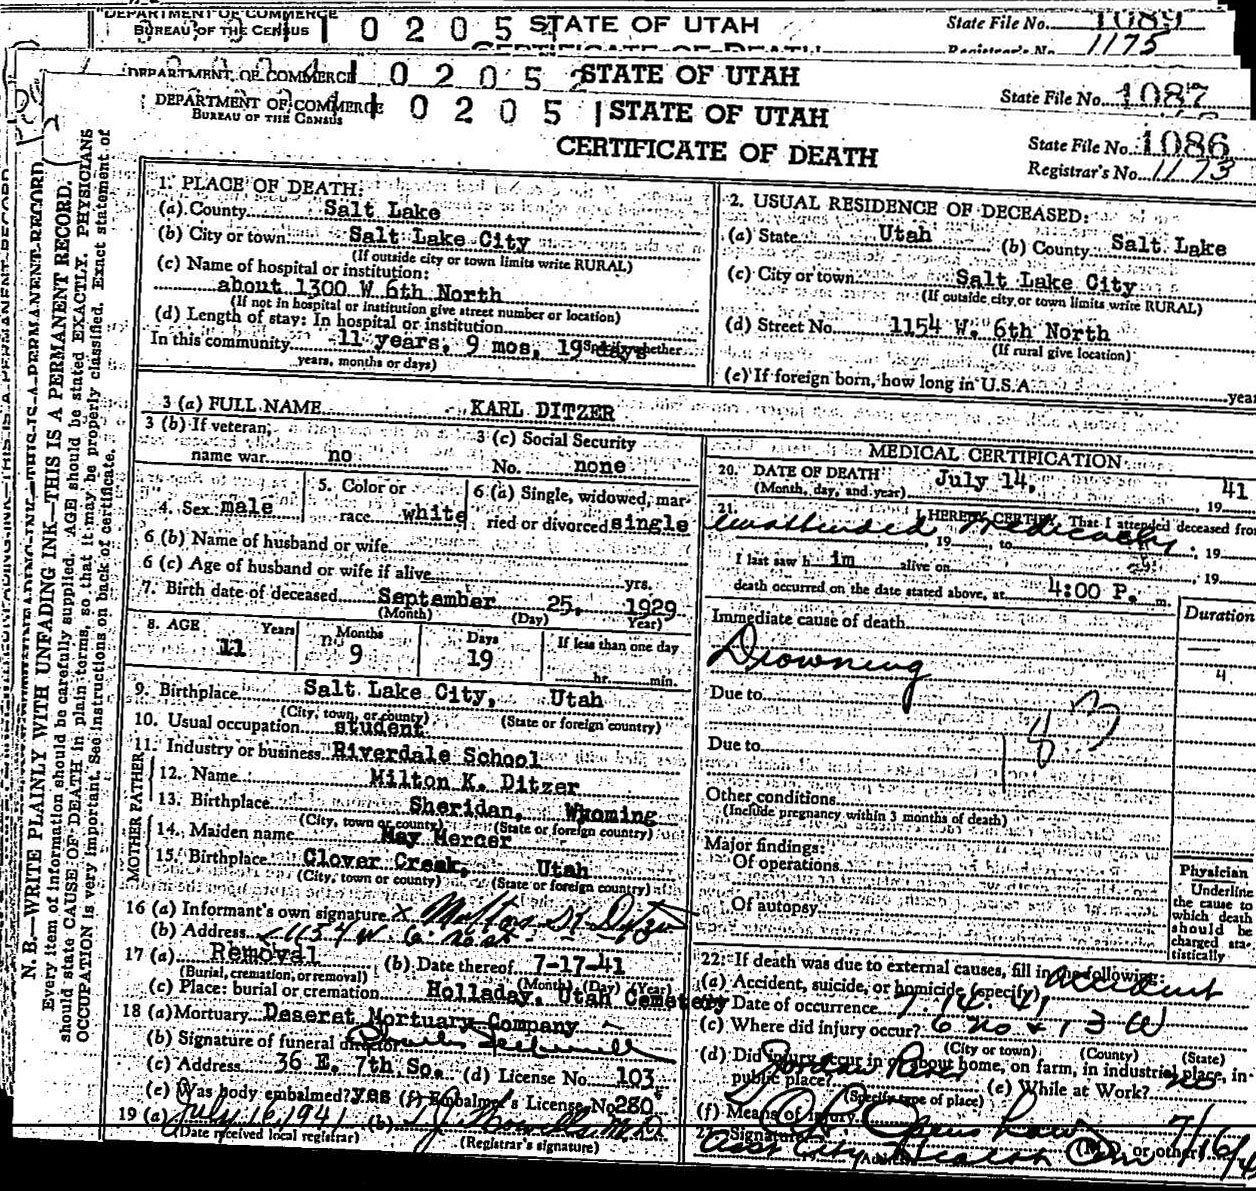 DEPARTMENT OF COMMERCE
BUREAU OF THE CENSUS
0 2 0 5
STATE OF UTAH
State File No. 1089
CERTIFICATE OF DEATH
Registrar's No. 1175
DEPARTMENT OF COMMERCE
0 2 0 5 2
STATE OF UTAH
State File No. 1087
DEPARTMENT OF COMMERCE
BUREAU OF THE CENSUS
0 2 0 5 1
STATE OF UTAH
CERTIFICATE OF DEATH
State File No. 1086
Registrar's No. 1173
N. B.—WRITE PLAINLY WITH UNFADING INK—THIS IS A PERMANENT RECORD.
Every item of information should be carefully supplied. AGE should be stated EXACTLY. PHYSICIANS
should state CAUSE OF DEATH in plain terms, so that it may be properly classified. Exact statement of
OCCUPATION is very important. See instructions on back of certificate.
1. PLACE OF DEATH:
(a) County Salt Lake
(b) City or town Salt Lake City
(If outside city or town limits write RURAL)
(c) Name of hospital or institution:
about 1300 W 6th North
(If not in hospital or institution give street number or location)
(d) Length of stay: In hospital or institution
In this community 11 years, 9 mos, 19 days
years, months or days)
2. USUAL RESIDENCE OF DECEASED:
(a) State Utah (b) County Salt Lake
(c) City or town Salt Lake City
(If outside city or town limits write RURAL)
(d) Street No. 1154 W. 6th North
(If rural give location)
(e) If foreign born, how long in U.S.A. year
3 (a) FULL NAME KARL DITZER
3 (b) If veteran, name war no
3 (c) Social Security No. none
4. Sex male
5. Color or race white
6 (a) Single, widowed, married or divorced single
6 (b) Name of husband or wife
6 (c) Age of husband or wife if alive yrs.
7. Birth date of deceased September 25, 1929
(Month) (Day) (Year)
8. AGE Years 11 Months 9 Days 19 If less than one day hr. min.
9. Birthplace Salt Lake City, Utah
(City, town, or county) (State or foreign country)
10. Usual occupation student
11. Industry or business Riverdale School
FATHER
12. Name Milton K. Ditzer
13. Birthplace Sheridan, Wyoming
(City, town or county) (State or foreign country)
MOTHER
14. Maiden name May Mercer
15. Birthplace Clover Creek, Utah
(City, town or county) (State or foreign country)
16 (a) Informant's own signature x
(b) Address
17 (a) Removal (b) Date thereof 7-17-41
(Burial, cremation, or removal) (Month) (Day) (Year)
(c) Place: burial or cremation Holladay, Utah Cemetery
18 (a) Mortuary Deseret Mortuary Company
(b) Signature of funeral director
(c) Address 36 E. 7th So. (d) License No. 103
(e) Was body embalmed? yes (f) Embalmer's License No. 280
19 (a) July 16, 1941 (b)
(Date received local registrar) (Registrar's signature)
MEDICAL CERTIFICATION
20. DATE OF DEATH July 14, 41
(Month, day, and year)
21. I HEREBY CERTIFY, That I attended deceased from
unattended medically
, 19 , to , 19
I last saw h im alive on , 19
death occurred on the date stated above, at 4:00 P. m.
Immediate cause of death
Duration
Drowning
Due to
183
Due to
Other conditions
(Include pregnancy within 3 months of death)
Major findings:
Of operations
Of autopsy
Physician
Underline
the cause to
which death
should be
charged sta-
tistically
22. If death was due to external causes, fill in the following:
(a) Accident, suicide, or homicide (specify) Accident
(b) Date of occurrence 7. 14. 41
(c) Where did injury occur? 6 no & 13 W
(City or town) (County) (State)
(d) Did injury occur in or about home, on farm, in industrial place, in
public place? Jordan River (e) While at Work? no
(Specify type of place)
(f) Means of injury
Signature (M.D. or other) 7/16/41
Address